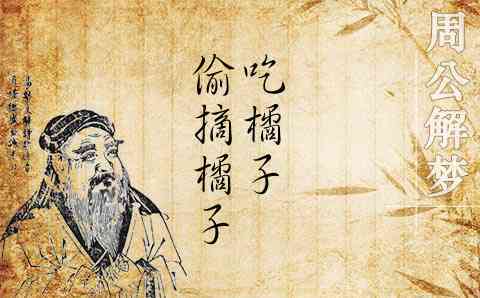 周公解梦
吃橘子
偷摘橘子